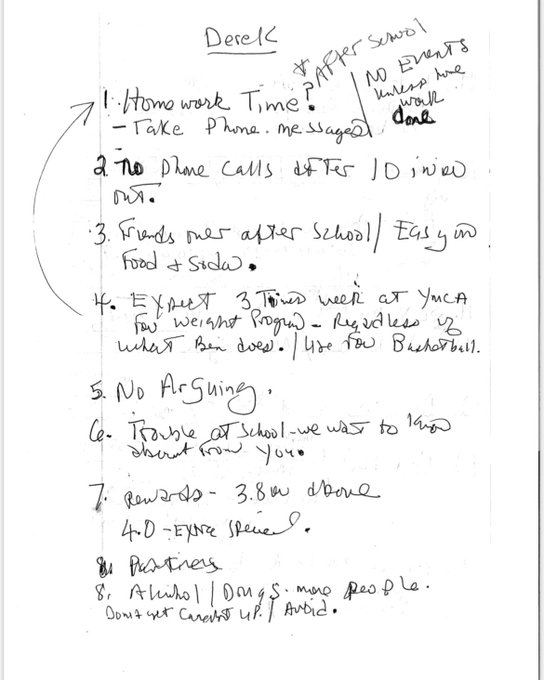 Derek
* After School
1. Homework Time?
NO Events
unless home
work
done
- Take Phone messages
2. no phone calls after 10 in or
out.
3. Friends over after school / Easy on
Food + Soda.
4. Expect 3 Times week at YMCA
for weight Program - Regardless of
what Ben does. / for Basketball.
5. No Arguing.
6. Trouble at School - we want to know
about from you.
7. Rewards - 3.8 or above
4.0 - Extra Special.
8. Partners
8. Alcohol / Drugs. more people.
Dont get Caught up. / Avoid.